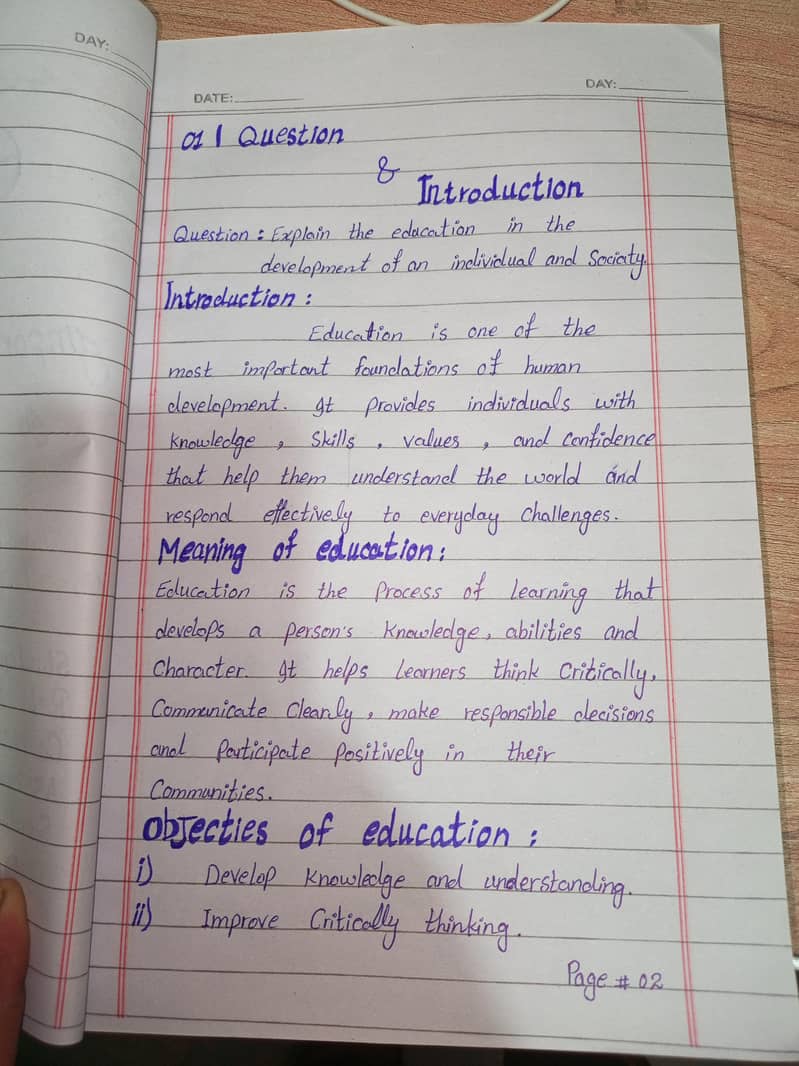 DAY:
DATE:
DAY:
01 | Question
&
Introduction
Question: Explain the education in the
development of an individual and Sociaty.
Introduction:
Education is one of the
most important foundations of human
development. It provides individuals with
knowledge, skills, values, and confidence
that help them understand the world and
respond effectively to everyday challenges.
Meaning of education:
Education is the process of learning that
develops a person's knowledge, abilities and
character. It helps learners think critically,
Communicate clearly, make responsible decisions
and participate positively in their
Communities.
Objecties of education:
i) Develop knowledge and understanding.
ii) Improve Critically thinking.
Page # 02